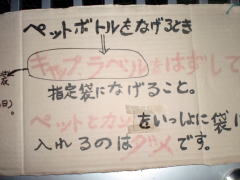 ペットボトルをなげるとき
キャップ、ラベルをはずして
指定袋になげること。
ペットとカン をいっしょに袋に
入れるのはダメです。
袋
日)